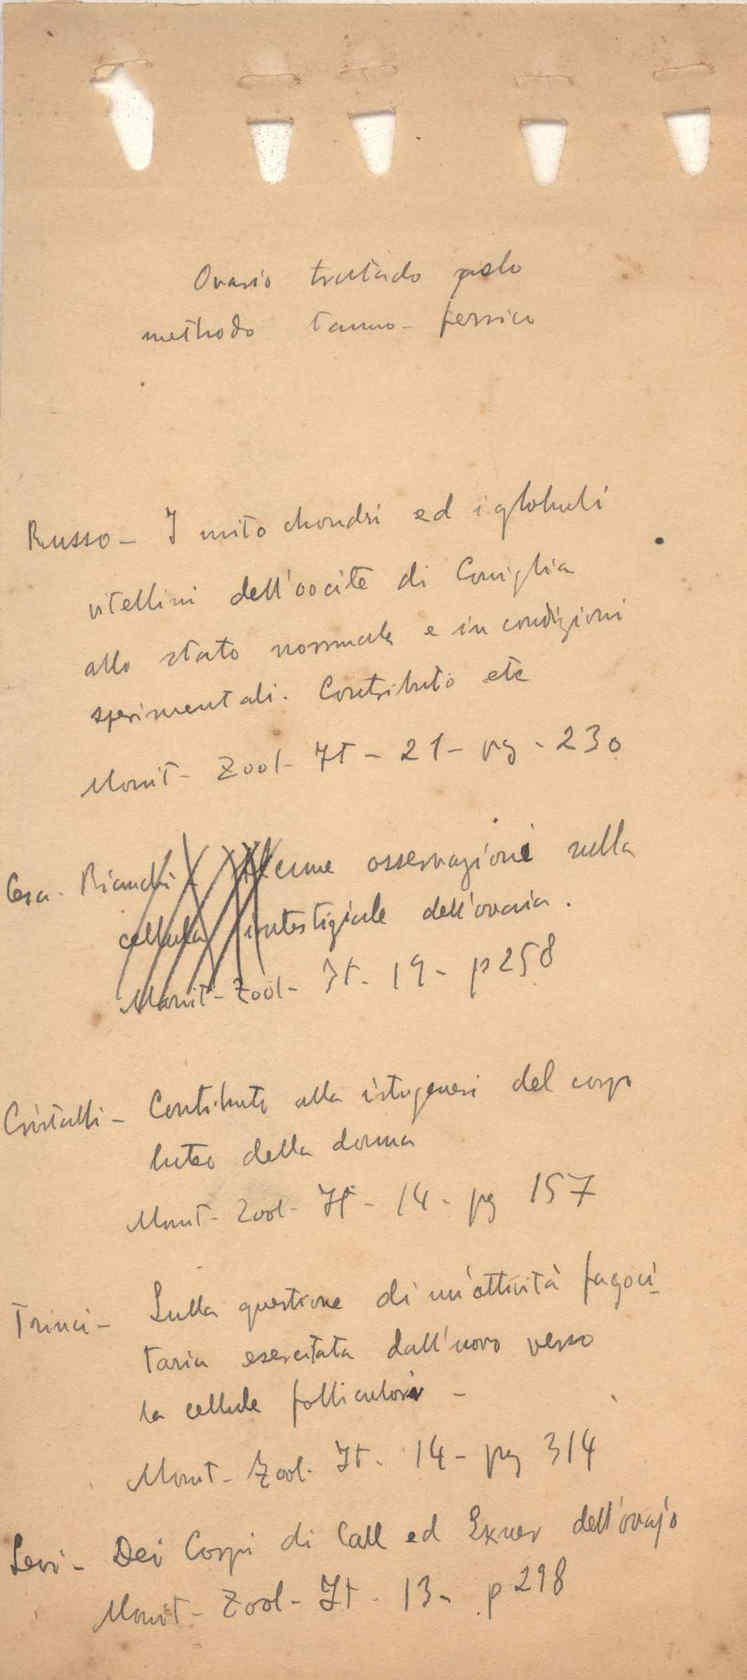 Ovario tratado pelo
methodo tanno-ferrico
Russo - I mitochondri ed i globuli
vitellini dell'oocite di Coniglia
allo stato normale e in condizioni
sperimentali. Contributo etc
Monit- Zool- It - 21 - pg - 230
Cesa-Bianchi - Alcune osservazioni sulla
cellula intestiziale dell'ovaia.
Monit- Zool- It - 19 - p 258
Cristalli - Contributo alla istogenesi del corpo
luteo della donna
Monit- Zool- It - 14 - pg 157
Trinci - Sulla questione di un'attività fagoci-
taria esercitata dall'uovo verso
la cellule follicolari -
Monit- Zool- It - 14 - pg 314
Levi - Dei Corpi di Call ed Exner dell'ovajo
Monit- Zool- It - 13 - p 298